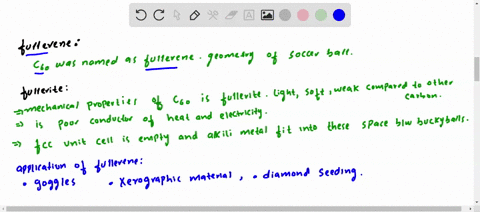 fullerene:
C60 was named as fullerene. geometry of soccar ball.
fullerite:
⇒ mechanical properties of C60 is fullerite. light, soft, weak compared to other carbon.
⇒ is poor conductor of heat and electricity.
⇒ fcc unit cell is empty and akili metal fit into these space b/w buckyballs.
application of fullerene:
• goggles • xerographic material, • diamond seeding.